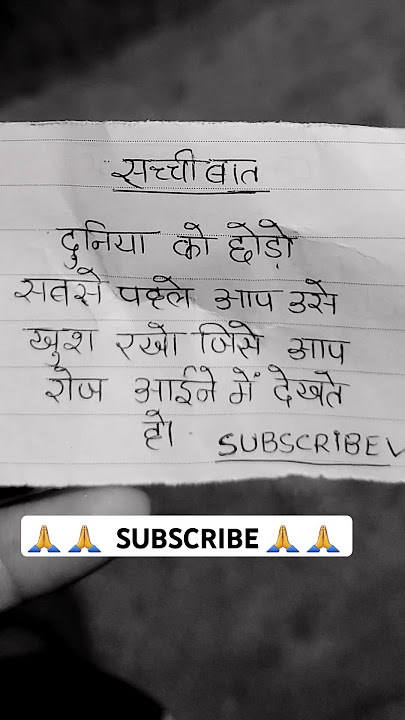 सच्ची बात
दुनिया को छोड़ो
सबसे पहले आप उसे
खुश रखो जिसे आप
रोज आईने में देखते
हो।
SUBSCRIBE
🙏🙏 SUBSCRIBE 🙏🙏